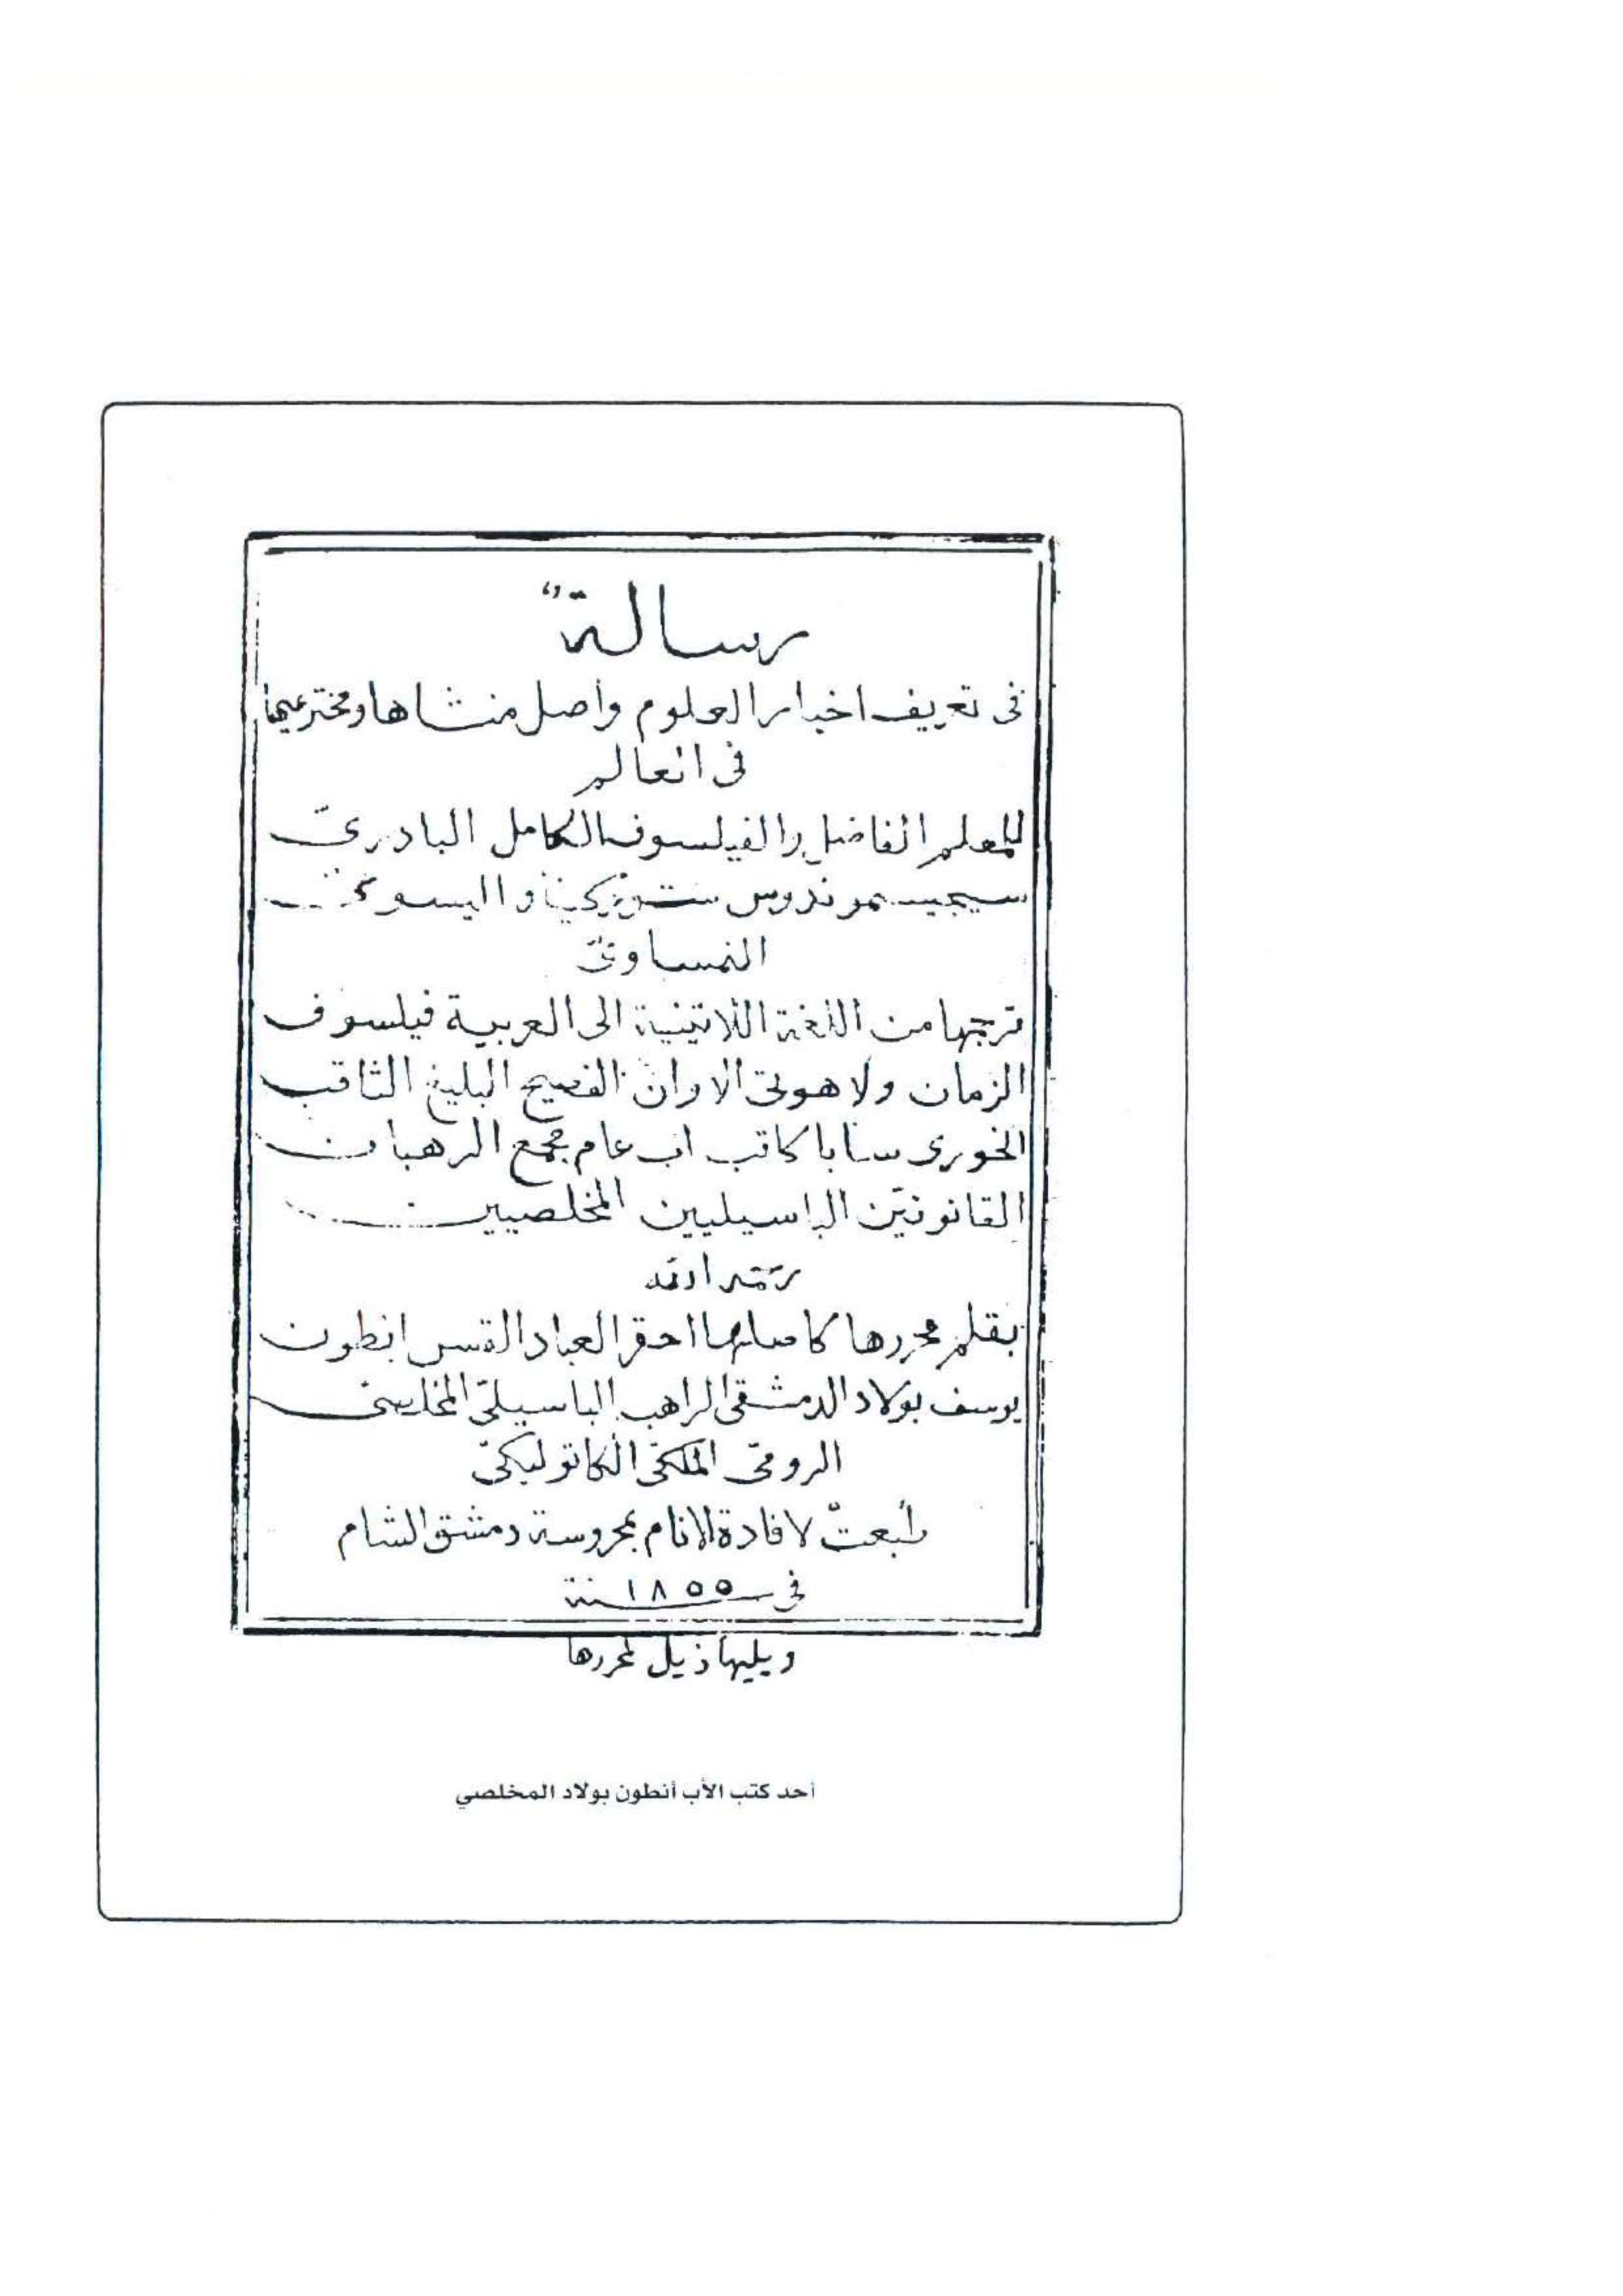 رسالةٌ
فى تعريف اخبار العلوم واصل منشاها ومخترعيها
فى العالم
للمعلم الفاضل والفيلسوف الكامل البادرىّ
سيجيسموندوس واليسوعىّ
النمساوىّ
ترجمها من اللغة اللاتينية الى العربية فيلسوف
الزمان ولاهوتى الاوان الفصيح البليغ الثاقب
الخورى سابا كاتب اب عام مجمع الرهبان
القانونيّن الباسيليين المخلصيين
بقلم محررها احقر العباد القس انطون
يوسف بولاد الدمشقى الراهب الباسيلىّ المخلصىّ
الرومىّ الملكىّ الكاتوليكىّ
طُبعتْ لافادة الانام بمحروسة دمشق الشام
فى سنة ١٨٥٥
ويليها ذيل لمحررها
أحد كتب الأب أنطون بولاد المخلصي